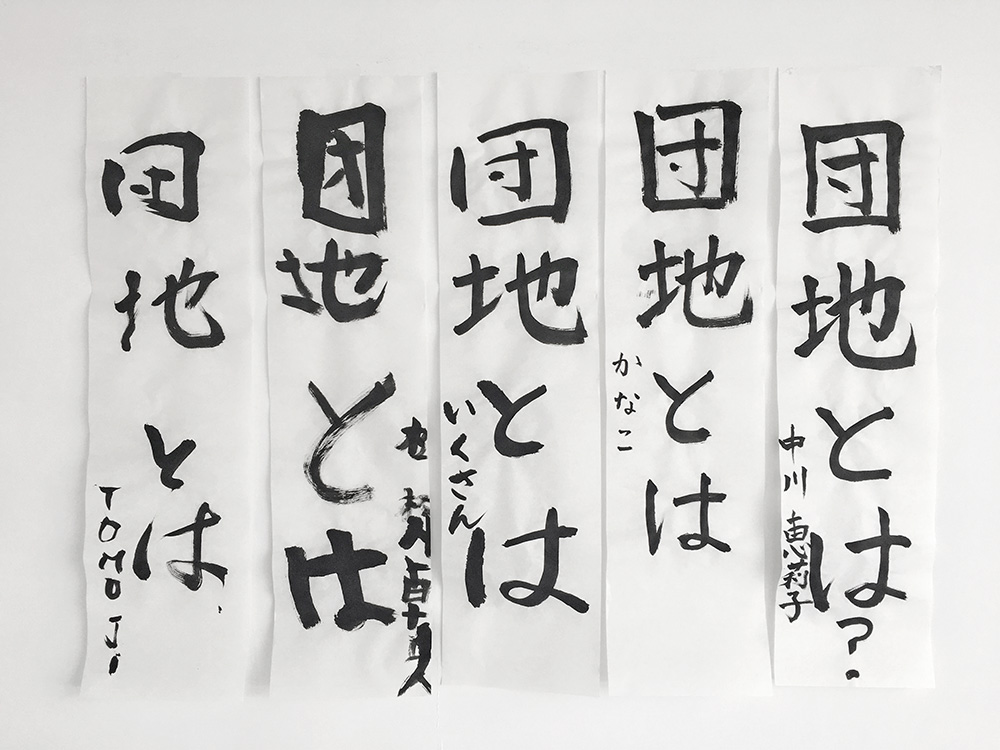 団地とは?
中川恵莉子
団地とは
かなこ
団地とは
いくさん
団地とは
団地とは、
TOMOJI